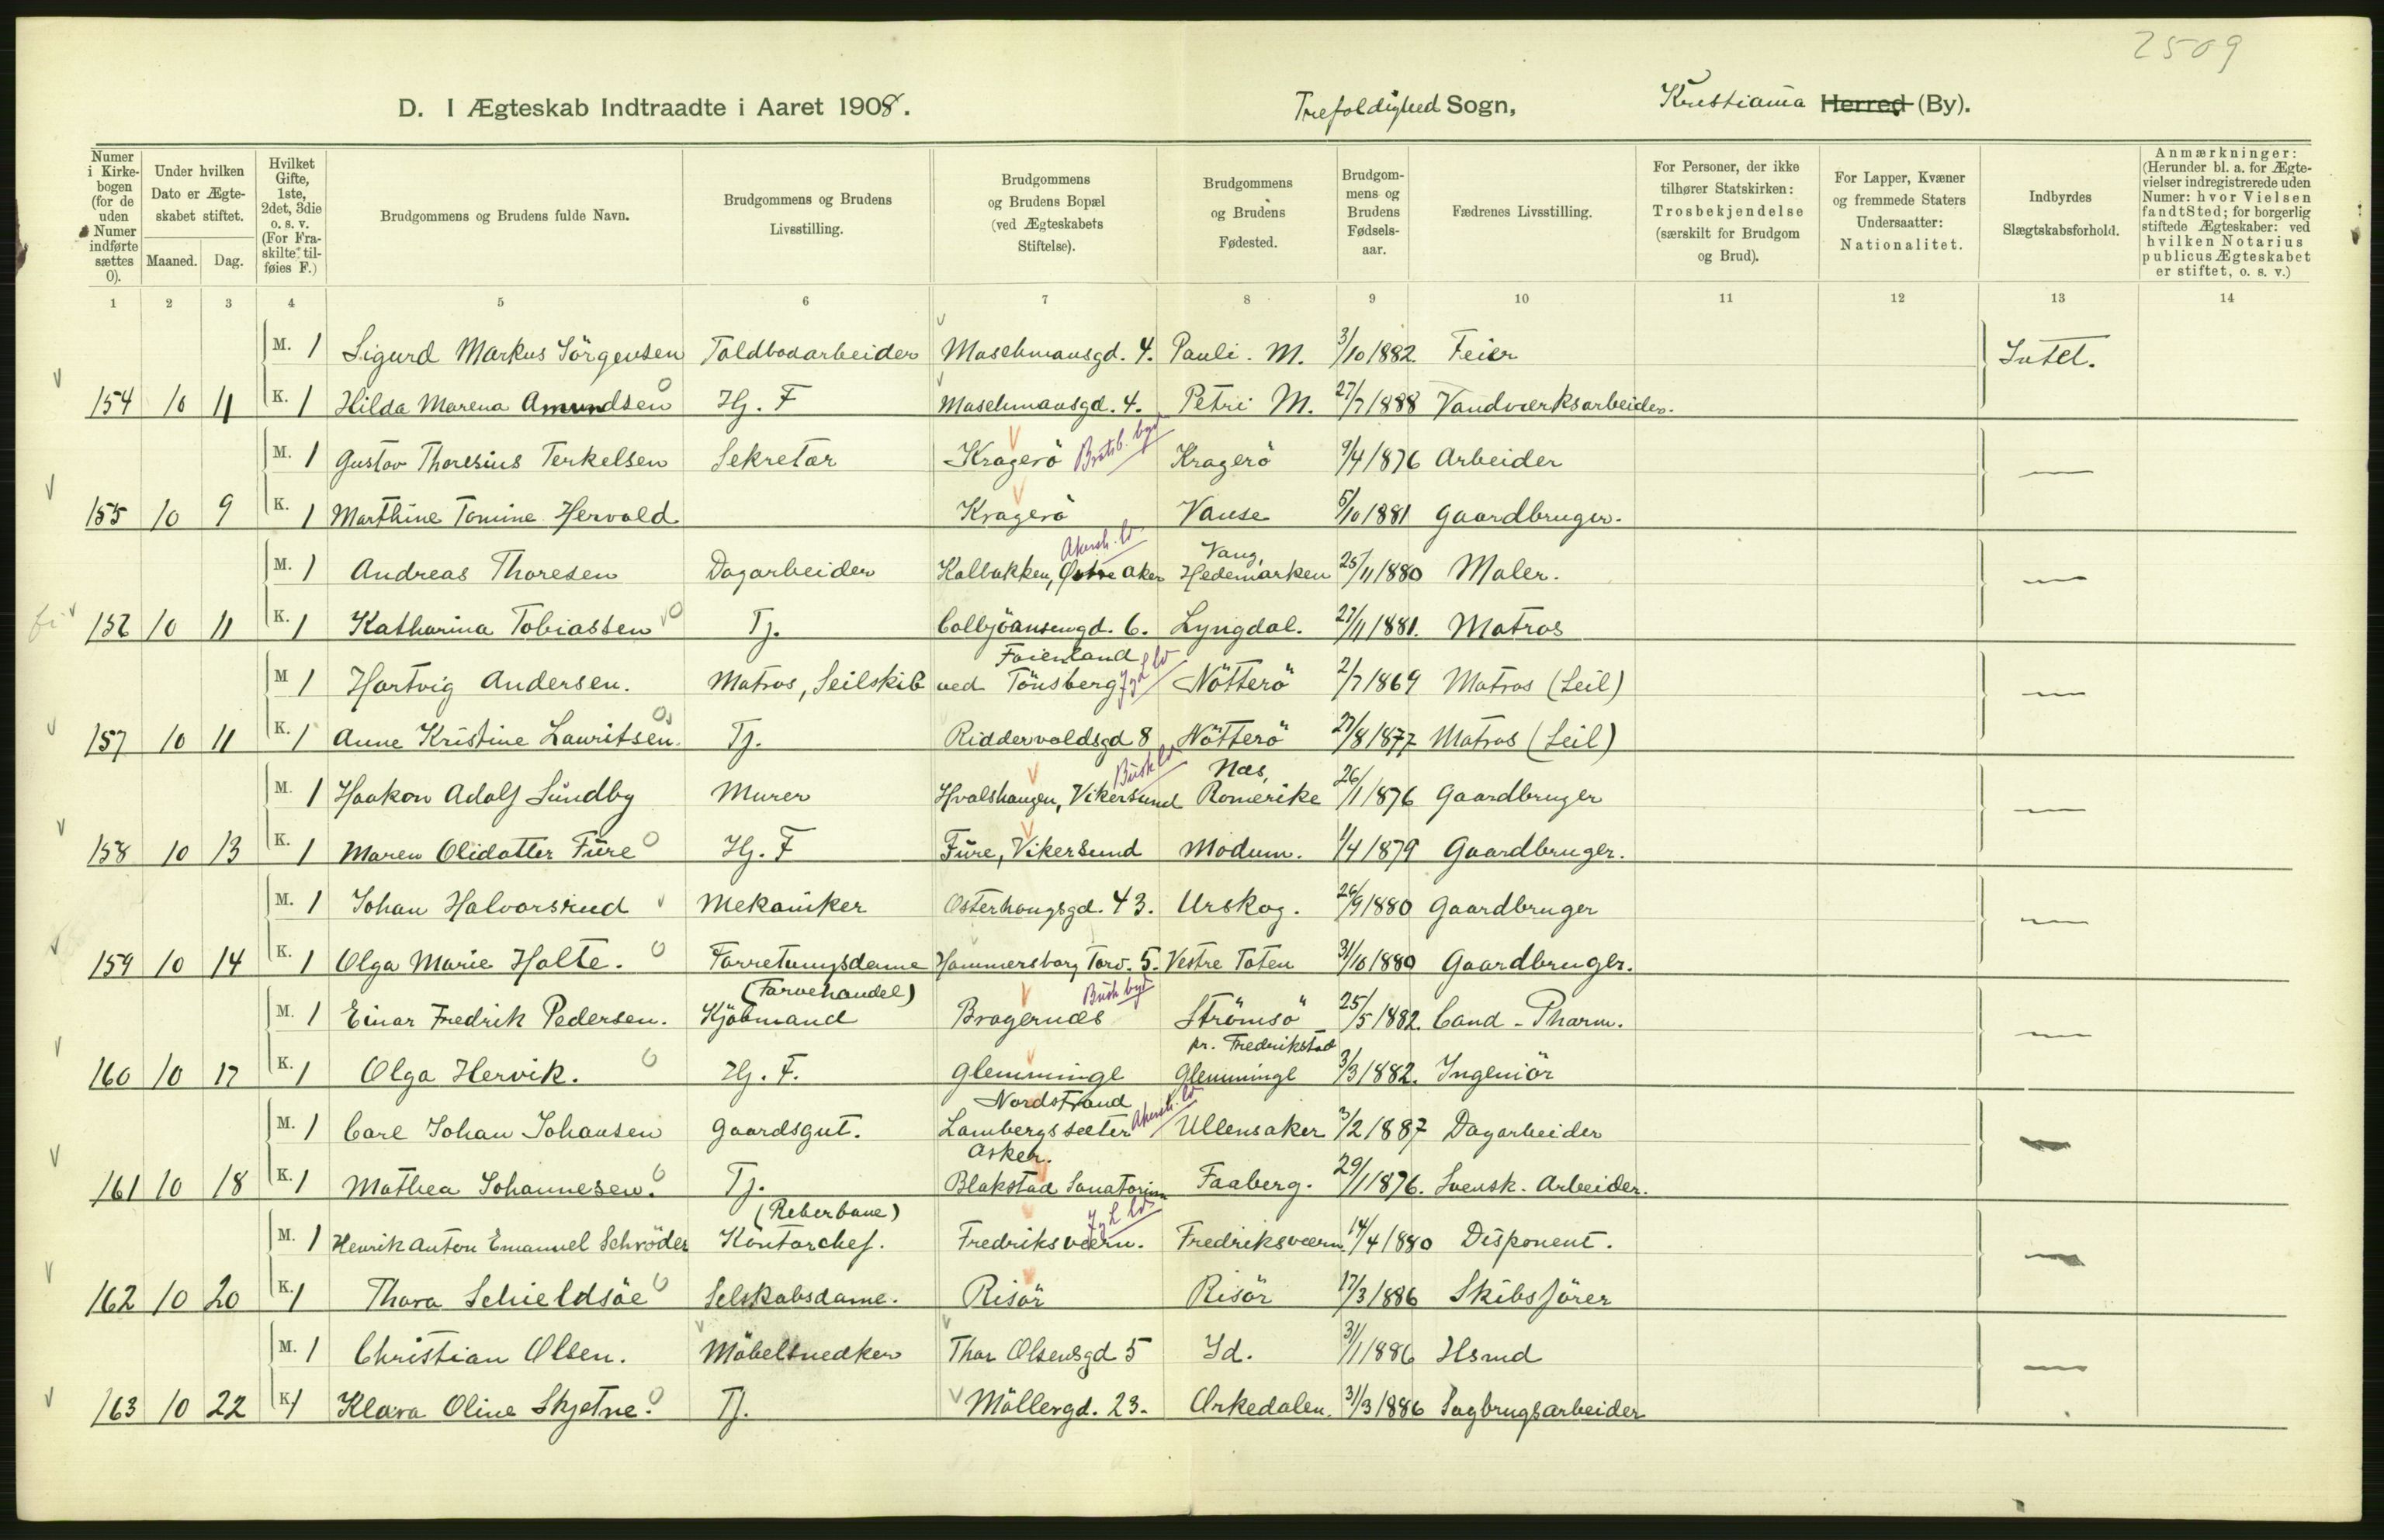 2509
D. I Ægteskab Indtraadte i Aaret 1908.
Trefoldighed Sogn,
Kristiania Herred (By).
Numer i Kirkebogen (for de uden Numer indførte sættes 0).
Under hvilken Dato er Ægteskabet stiftet.
Maaned. Dag.
Hvilket Gifte, 1ste, 2det, 3die o. s. v. (For Fraskilte tilføies F.)
Brudgommens og Brudens fulde Navn.
Brudgommens og Brudens Livsstilling.
Brudgommens og Brudens Bopæl (ved Ægteskabets Stiftelse).
Brudgommens og Brudens Fødested.
Brudgommens og Brudens Fødselsaar.
Fædrenes Livsstilling.
For Personer, der ikke tilhører Statskirken: Trosbekjendelse (særskilt for Brudgom og Brud).
For Lapper, Kvæner og fremmede Staters Undersaatter: Nationalitet.
Indbyrdes Slægtskabsforhold.
Anmærkninger: (Herunder bl. a. for Ægtevielser indregistrerede uden Numer: hvor Vielsen fandt Sted; for borgerlig stiftede Ægteskaber: ved hvilken Notarius publicus Ægteskabet er stiftet, o. s. v.)
1 2 3 4 5 6 7 8 9 10 11 12 13 14
M. 1 Sigurd Markus Jörgensen Toldbodarbeider Maschmansgd. 4. Pauli. M. 3/10 1882 Feier Intet.
154 10 11 K. 1 Hilda Marena Amundsen Hj. F Maschmansgd. 4. Petri M. 27/7 1888 Vandværksarbeider.
M. 1 Gustav Thoresius Terkelsen Sekretær Kragerö Bratsb. byd Kragerö 9/4 1876 Arbeider —
155 10 9 K. 1 Marthine Tomine Hervold Kragerö Vanse 5/10 1881 Gaardbruger.
Akersh. ld Vang,
M. 1 Andreas Thoresen Dagarbeider Kalbakken, Østre Aker Hedemarken 25/11 1880 Maler. —
156 10 11 K. 1 Katharina Tobiassen Tj. Colbjörnsensgd. 6. Lyngdal. 27/11 1881. Matros
Föienland
M 1 Hartvig Andersen. Matros, Seilskib ved Tönsberg Jgl ld Nötterö 2/7 1869 Matros (Seil) —
157 10 11 K. 1 Anne Kristine Lauritsen. Tj. Riddervoldsgd 8 Nötterö 27/8 1877 Matros (Seil)
Busk ld Næs,
M. 1 Haakon Adolf Sundby Murer Hvalshaugen, Vikersund Romerike 26/1 1876 Gaardbruger —
158 10 13 K. 1 Maren Olidatter Fure Hj. F Fure, Vikersund Modum. 1/4 1879 Gaardbruger.
M. 1 Johan Halvorsrud Mekaniker Osterhaugsgd. 43. Urskog. 26/9 1880 Gaardbruger —
159 10 14 K. 1 Olga Marie Holte. Forretningsdame Hammersborg Torv. 5. Vestre Toten 31/10 1880 Gaardbruger.
(Farvehandel) Busk byd
M. 1 Einar Fredrik Pedersen. Kjöbmand Bragernæs Strömsö 25/5 1882. Cand. Pharm. —
pr. Fredrikstad
160 10 17 K. 1 Olga Hervik. Hj. F. Glemminge Glemminge 3/3 1882. Ingeniör
Nordstrand Akersh. ld
M. 1 Carl Johan Johansen Gaardsgut. Lambergssæter Ullensaker 3/2 1887 Dagarbeider —
Asker.
161 10 18 K. 1 Mathea Johannesen. Tj. Blakstad Sanatorium Faaberg. 29/1 1876. Svensk. Arbeider.
(Reberbane) Jgl ld
M. 1 Henrik Anton Emanuel Schröder Kontorchef. Fredriksværn. Fredriksværn 14/4 1880 Disponent. —
162 10 20 K. 1 Thora Schieldsöe Selskabsdame. Risör Risör 17/3 1886 Skibsförer
M. 1 Christian Olsen. Möbelsnedker Thor Olsensgd 5 Id. 31/1 1886 Hsmd —
163 10 22 K. 1 Klara Oline Skjetne. Tj. Möllergd. 23. Orkedalen. 31/3 1886 Sagbrugsarbeider